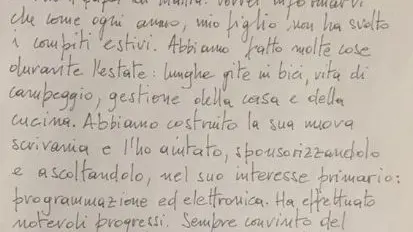 papà di Mattia. Vorrei informarvi
che come ogni anno, mio figlio non ha svolto
i compiti estivi. Abbiamo fatto molte cose
durante l'estate: lunghe gite in bici, vita di
campeggio, gestione della casa e della
cucina. Abbiamo costruito la sua nuova
scrivania e l'ho aiutato, sponsorizzandolo
e ascoltandolo, nel suo interesse primario:
programmazione ed elettronica. Ha effettuato
notevoli progressi. Sempre convinto del